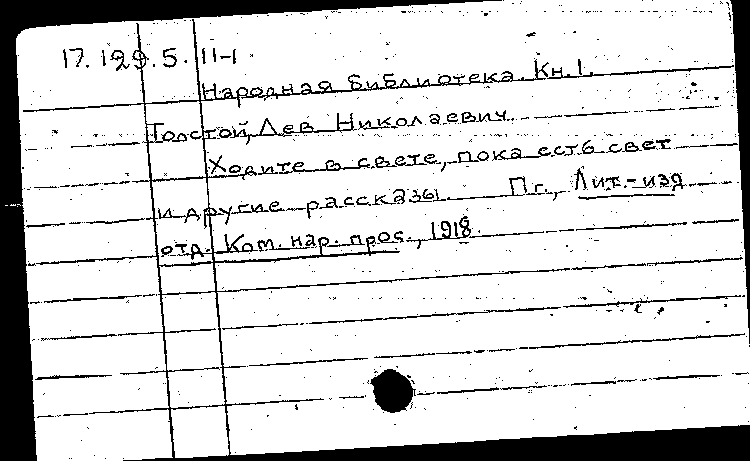 17.129.5.11-1
Народная библиотека. Кн. 1.
Толстой, Лев Николаевич.
Ходите в свете, пока есть свет
и другие рассказы. Пг., Лит.-изд
отд. Ком. нар. прос., 1918.